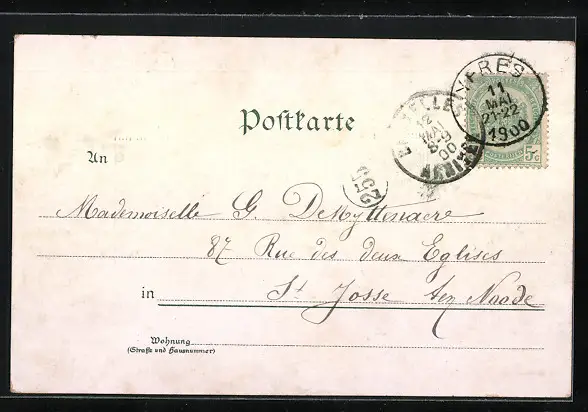 YPRES
11
MAI
21-22
1900
12
MAI
8-9
00
5c
Postkarte
An
Mademoiselle G. DeMyttenaere
87 Rue des deux Eglises
in St Josse ten Noode
Wohnung
(Straße und Hausnummer)